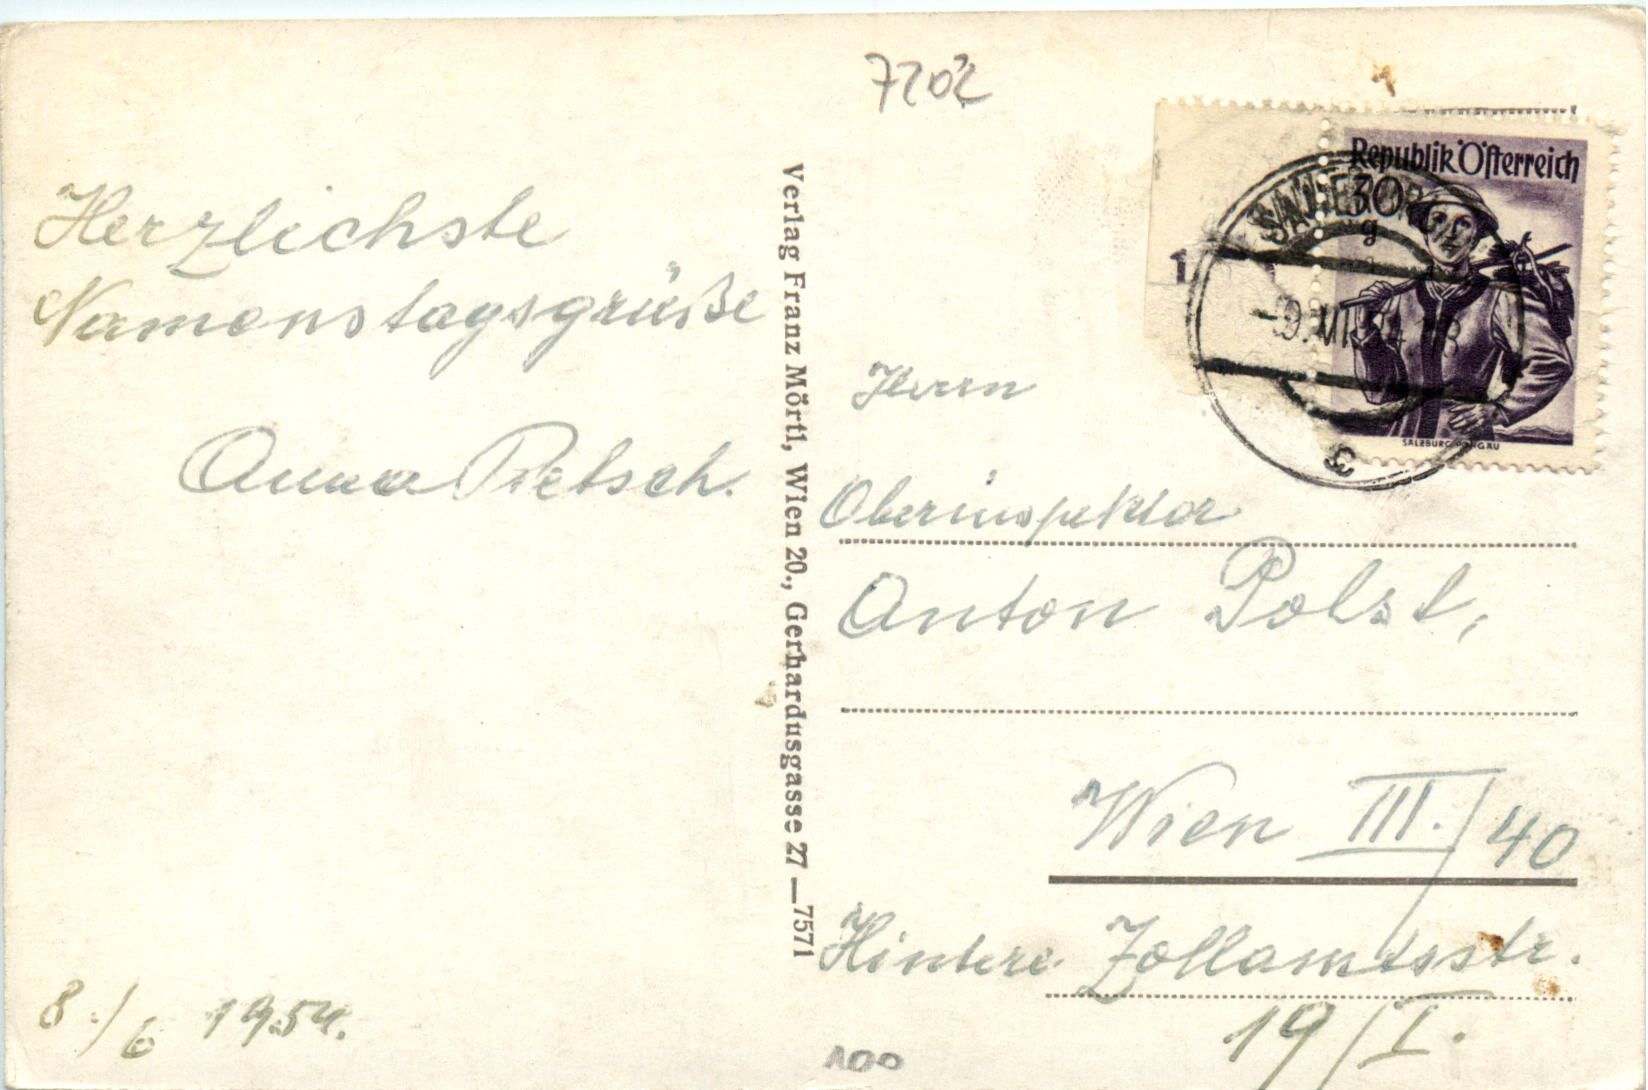 7202
Herzlichste
Namenstagsgrüße
Anna Pietsch.
8./6 1954.
Verlag Franz Mörtl, Wien 20., Gerhardusgasse 27 — 7571
Republik Österreich
30
g
SALZBURG PONGAU
1
-9.VI.54 18
c
Herrn
Oberinspektor
Anton Polst,
Wien III./40
Hintere Zollamtsstr.
19/I.
100